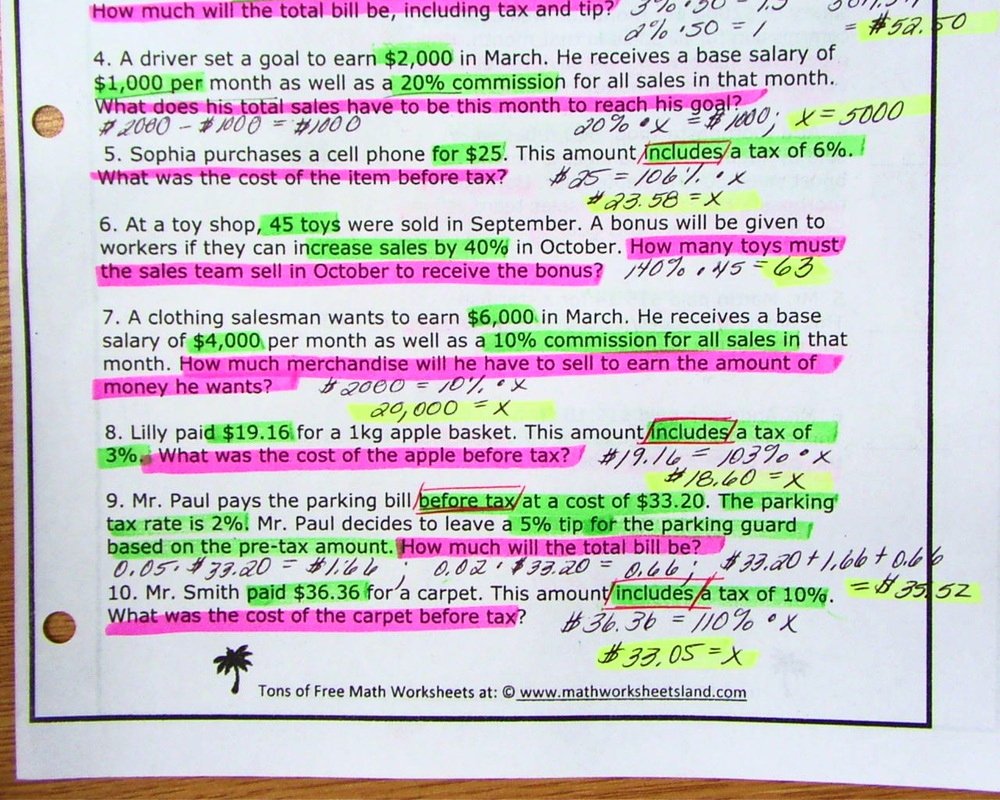 How much will the total bill be, including tax and tip? 3% • 50 = 1.5
2% • 50 = 1 = $52.50
4. A driver set a goal to earn $2,000 in March. He receives a base salary of
$1,000 per month as well as a 20% commission for all sales in that month.
What does his total sales have to be this month to reach his goal?
$2000 - $1000 = $1000 20% • x = $1000; x = 5000
5. Sophia purchases a cell phone for $25. This amount includes a tax of 6%.
What was the cost of the item before tax? $25 = 106% • x
$23.58 = x
6. At a toy shop, 45 toys were sold in September. A bonus will be given to
workers if they can increase sales by 40% in October. How many toys must
the sales team sell in October to receive the bonus? 140% • 45 = 63
7. A clothing salesman wants to earn $6,000 in March. He receives a base
salary of $4,000 per month as well as a 10% commission for all sales in that
month. How much merchandise will he have to sell to earn the amount of
money he wants? $2000 = 10% • x
20,000 = x
8. Lilly paid $19.16 for a 1kg apple basket. This amount includes a tax of
3%. What was the cost of the apple before tax? $19.16 = 103% • x
$18.60 = x
9. Mr. Paul pays the parking bill before tax at a cost of $33.20. The parking
tax rate is 2%. Mr. Paul decides to leave a 5% tip for the parking guard
based on the pre-tax amount. How much will the total bill be?
0.05 • $33.20 = $1.66 ; 0.02 • $33.20 = 0.66; $33.20 + 1.66 + 0.66
10. Mr. Smith paid $36.36 for a carpet. This amount includes a tax of 10%. = $35.52
What was the cost of the carpet before tax? $36.36 = 110% • x
$33.05 = x
Tons of Free Math Worksheets at: © www.mathworksheetsland.com